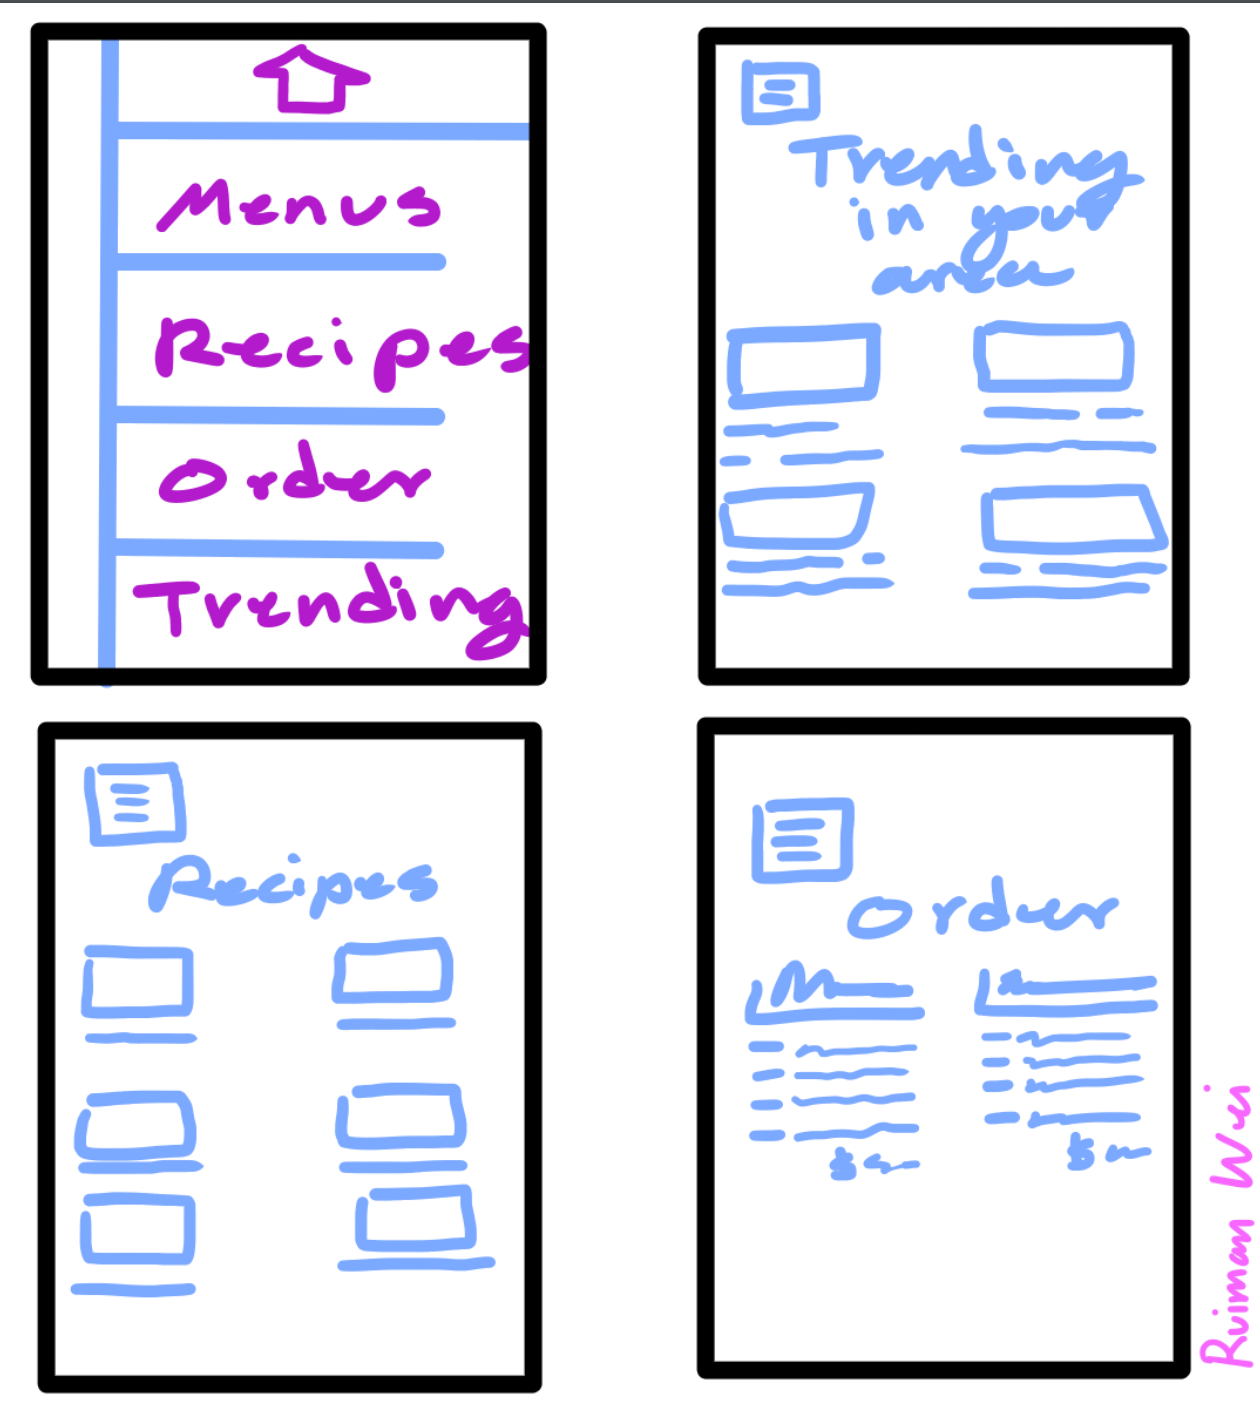 Menus
Recipes
Order
Trending
Trending
in your
area
Recipes
Order
$
$
Ruiman Wei